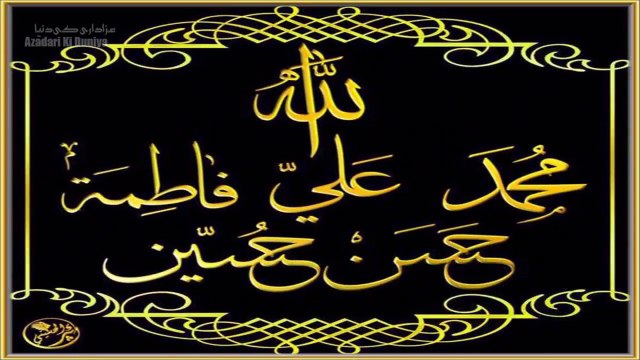 عزاداری کی دنیا
Azadari Ki Duniya
الله
محمد علي فاطمة
حسن حسين